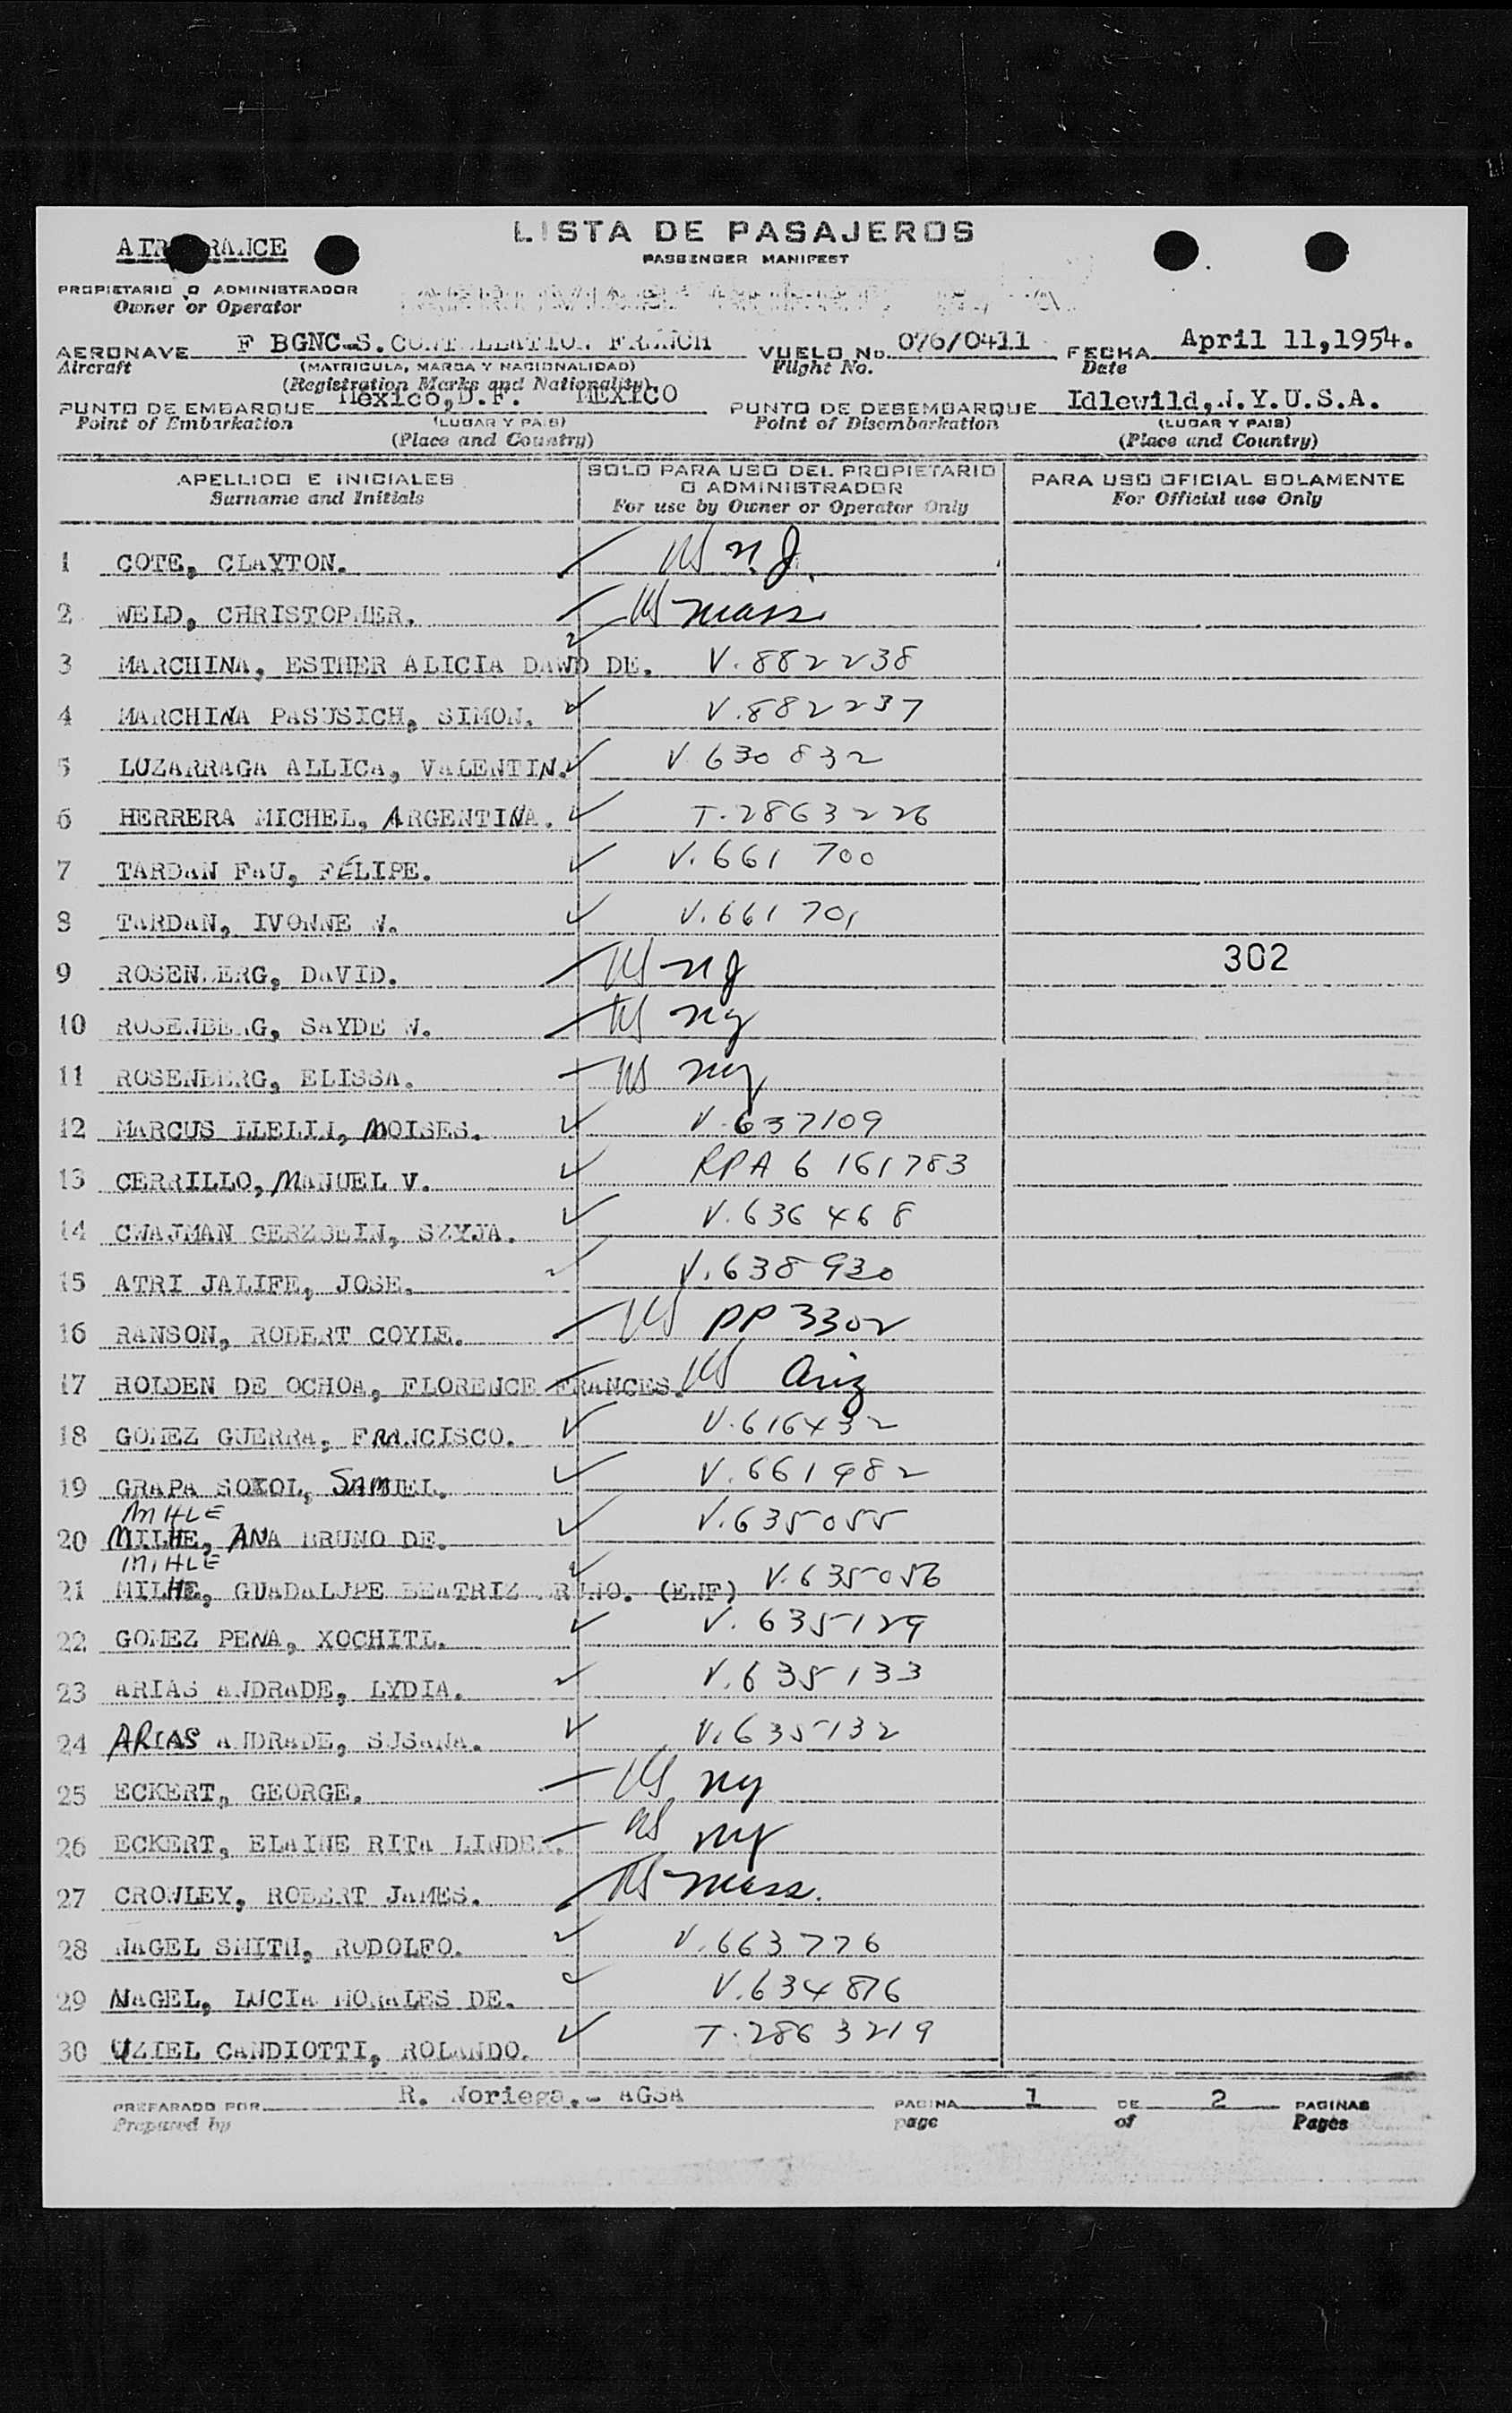 LISTA DE PASAJEROS
PASSENGER MANIFEST
AIR FRANCE
PROPIETARIO O ADMINISTRADOR
Owner or Operator
AERONAVE F BGNC-S. CONTELLATION FRENCH VUELO No. 076/0411 FECHA April 11,1954.
Aircraft (MATRICULA, MARCA Y NACIONALIDAD) Flight No. Date
(Registration Marks and Nationality)
PUNTO DE EMBARQUE Mexico,D.F. MEXICO PUNTO DE DESEMBARQUE Idlewild,N.Y.U.S.A.
Point of Embarkation (LUGAR Y PAIS) Point of Disembarkation (LUGAR Y PAIS)
(Place and Country) (Place and Country)
APELLIDO E INICIALES SOLO PARA USO DEL PROPIETARIO O ADMINISTRADOR PARA USO OFICIAL SOLAMENTE
Surname and Initials For use by Owner or Operator Only For Official use Only
1 COTE, CLAYTON. US N.J.
2 WELD, CHRISTOPHER. US Mass
3 MARCHINA, ESTHER ALICIA DAWD DE. V.882238
4 MARCHINA PASUSICH, SIMON. V.882237
5 LUZARRAGA ALLICA, VALENTIN. V.630832
6 HERRERA MICHEL, ARGENTINA. T.2863226
7 TARDAN FAU, FÉLIPE. V.661 700
8 TARDAN, IVONNE W. V.661 701
9 ROSENBERG, DAVID. US NJ 302
10 ROSENBERG, SAYDE W. US NY
11 ROSENBERG, ELISSA. US NY
12 MARCUS LLELLI, MOISES. V.637109
13 CERRILLO, MANUEL V. RPA 6 161783
14 CWAJMAN GERZBEIN, SZYJA. V.636468
15 ATRI JALIFE, JOSE. V.638930
16 RANSON, ROBERT COYLE. US PP 3302
17 HOLDEN DE OCHOA, FLORENCE FRANCES. US Ariz
18 GOMEZ GUERRA, FRANCISCO. V.616432
19 GRAPA SOKOL, SAMUEL. V.661982
MIHLE
20 MILHE, ANA BRUNO DE. V.635055
MIHLE
21 MILHE, GUADALUPE BEATRIZ BRUNO. (ENF) V.635056
22 GOMEZ PENA, XOCHITL. V.635129
23 ARIAS ANDRADE, LYDIA. V.635133
24 ARIAS ANDRADE, SUSANA. V.635132
25 ECKERT, GEORGE. US NY
26 ECKERT, ELAINE RITA LINDER. US NY
27 CROWLEY, ROBERT JAMES. US Mass.
28 NAGEL SMITH, RODOLFO. V.663776
29 NAGEL, LUCIA MORALES DE. V.634876
30 UZIEL CANDIOTTI, ROLANDO. T.2863219
PREPARADO POR R. Noriega.- AGSA PAGINA 1 DE 2 PAGINAS
Prepared by page of Pages